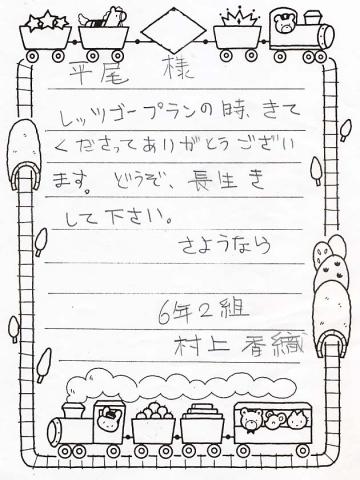 平尾 様
レッツゴープランの時、きて
くださってありがとうござい
ます。どうぞ、長生き
して下さい。
さようなら
6年2組
村上 香織